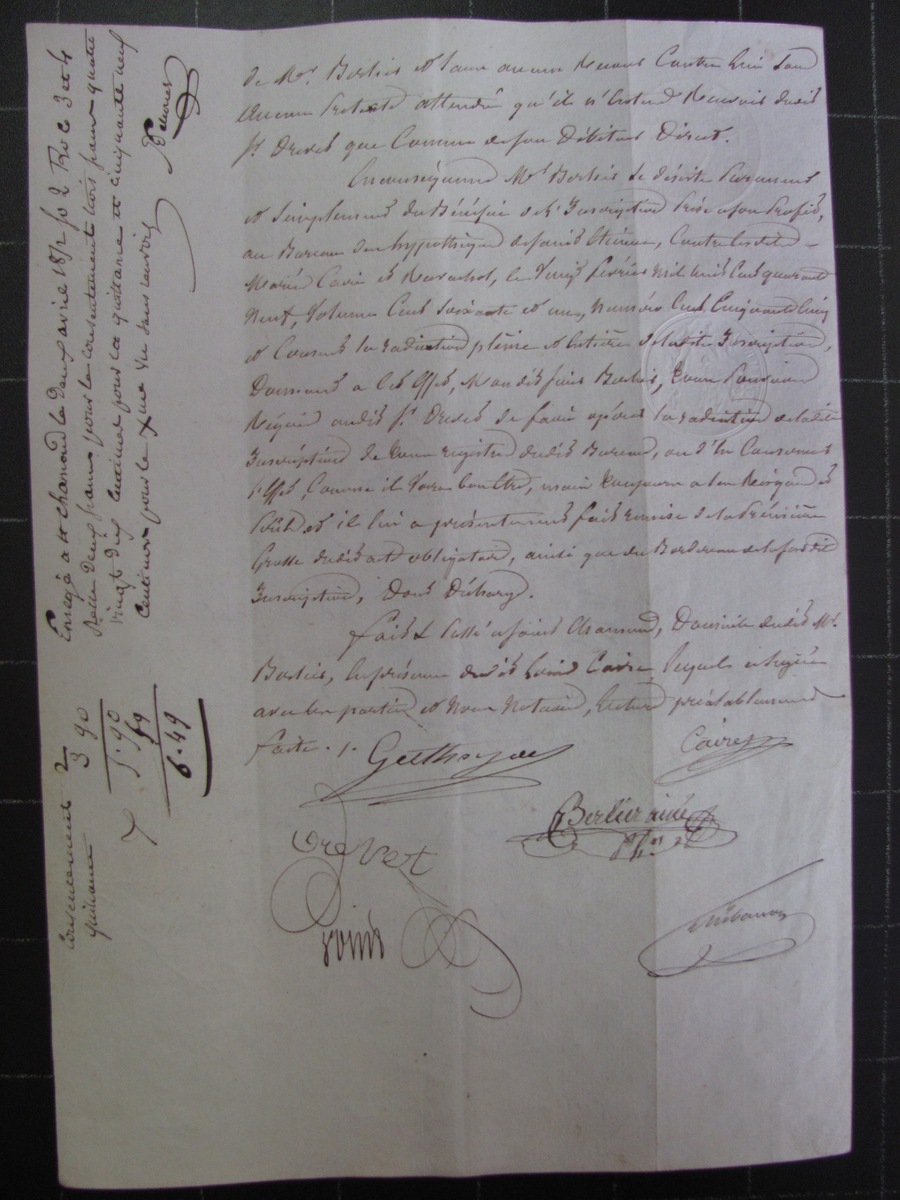 de Mr. Berlier et sans aucun Recours Contre lui sous
Aucun Prétexte attendu qu'il n'entend Recevoir dudit
sr. Drevet que Comme de son Débiteur Direct.
En conséquence Mr. Berlier se désiste Purement
et Simplement du Bénéfice de l'Inscription Prise à son Profit,
au Bureau des hypothèques de Saint Etienne, Contre lesdits
Mariés Caire et Ravachol, le Vingt février mil huit Cent quarante
Neuf, Volume Cent Soixante et un, Numéro Cent Cinquante Cinq
et Consent la radiation pleine et Entière de ladite Inscription,
Donnant à Ces Effets, Mondit sieur Berlier, tous Pouvoirs
Requis audit sr. Drevet de faire opérer la radiation de ladite
Inscription de tous registres dudit Bureau, ou d'En Conserver
l'effet, Comme il Jugera
et il lui a présentement fait remise de la Première
Grosse dudit acte obligatoire, ainsi que du Bordereau de la susdite
Inscription, Dont Décharge.
fait & Passé à Saint Chamond, Domicile dudit Mr.
Berlier, En présence dudit Caire, lequel a Signé
avec les parties et Nous Notaires, lecture préalablement
faite. /.
Caire
Berlier ainé
Drevet
Enregé à St chamond le deux avril 185 fo 2 Ro c 3 et 4
Reçu deux francs pour le consentement trois francs quatre
vingt dix centimes pour la quittance et cinquante neuf
centimes pour le xme
Consentement 2
quittance 3 90
5.90
59
6.49